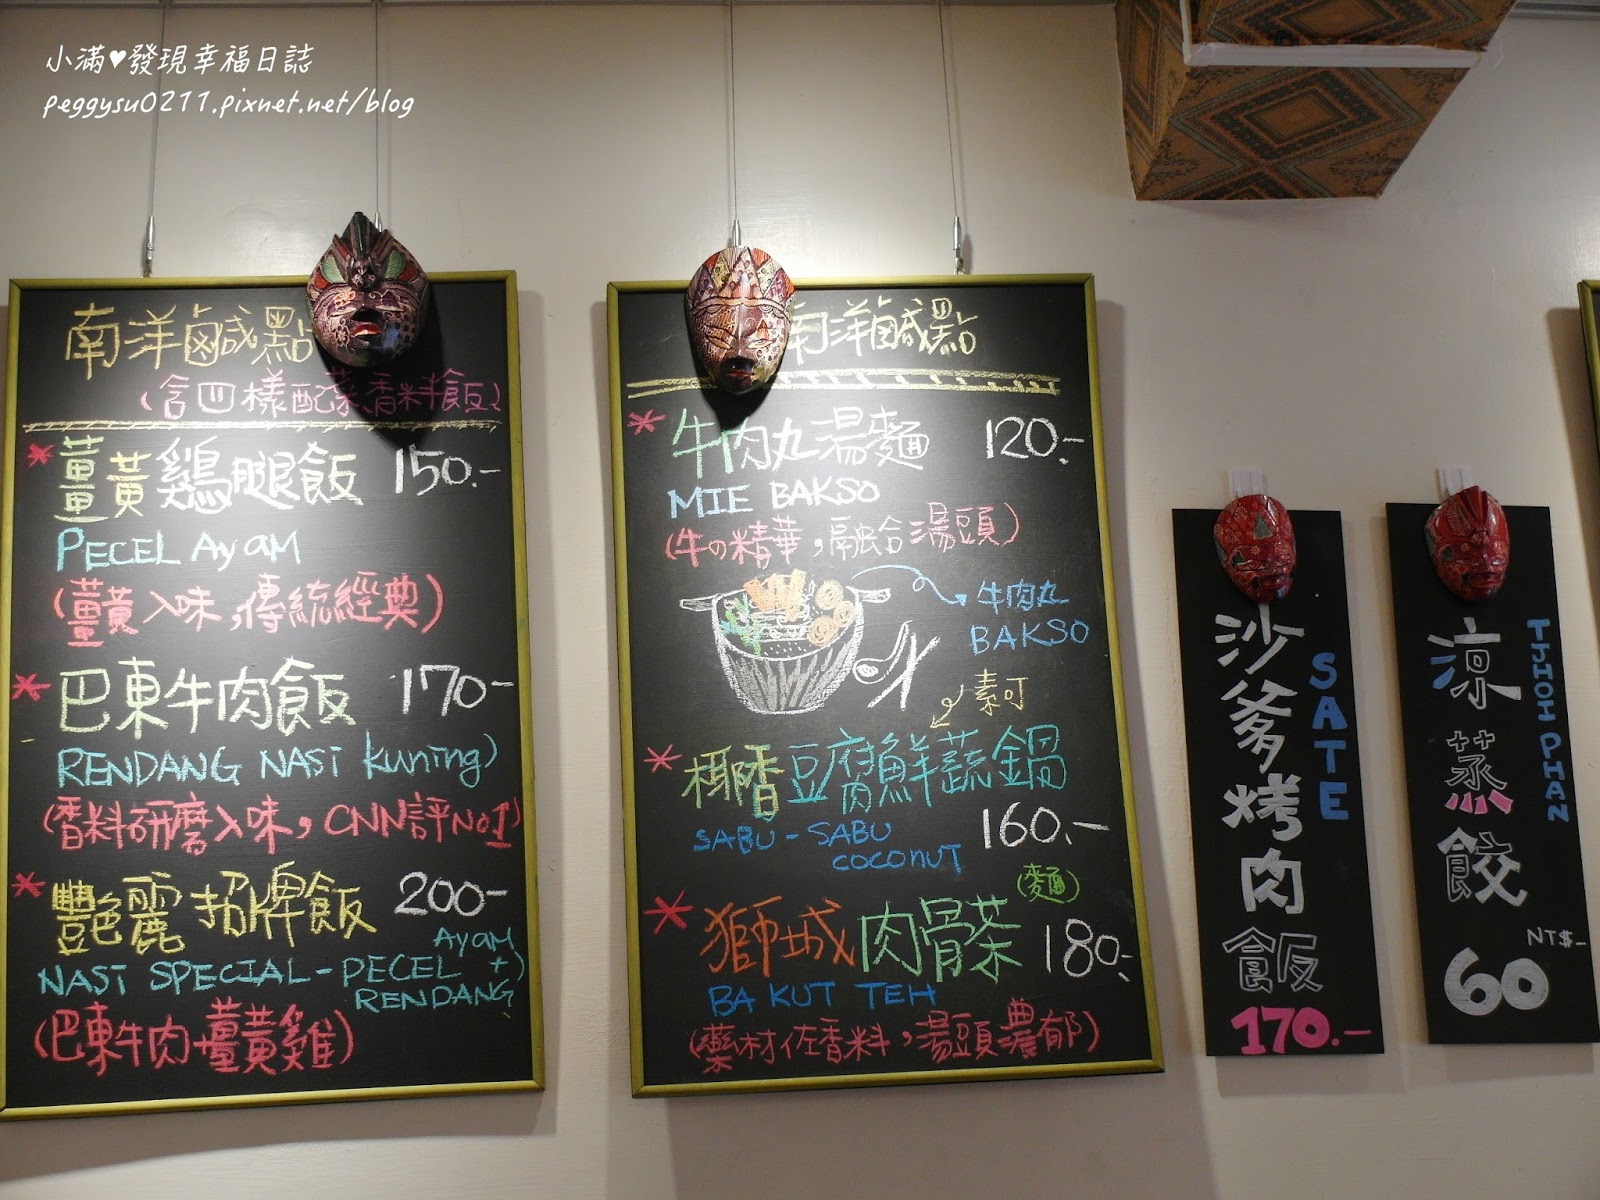 小滿♥發現幸福日誌
peggysu0211.pixnet.net/blog
南洋鹹點
(含四樣配菜香料飯)
*薑黃鷄腿飯 150.-
PECEL AyaM
(薑黃入味,傳統經典)
*巴東牛肉飯 170-
RENDANG NASi kuning)
(香料研磨入味,CNN評No1)
*豔麗招牌飯 200-
NASi SPECIAL-PECEL AyAM +)
RENDANG
(巴東牛肉+薑黃雞)
南洋鹹點
*牛肉丸湯麵 120.-
MIE BAKSO
(牛の精華,融合湯頭)
牛肉丸
BAKSO
素可
*椰香豆腐鮮蔬鍋
SABU-SABU 160.-
COCONUT
(麵)
*獅城肉骨茶 180.-
BA KUT TEH
(藥材佐香料,湯頭濃郁)
沙爹烤肉飯
SATE
170.-
涼蒸餃
TJHOI PHAN
NT$-
60